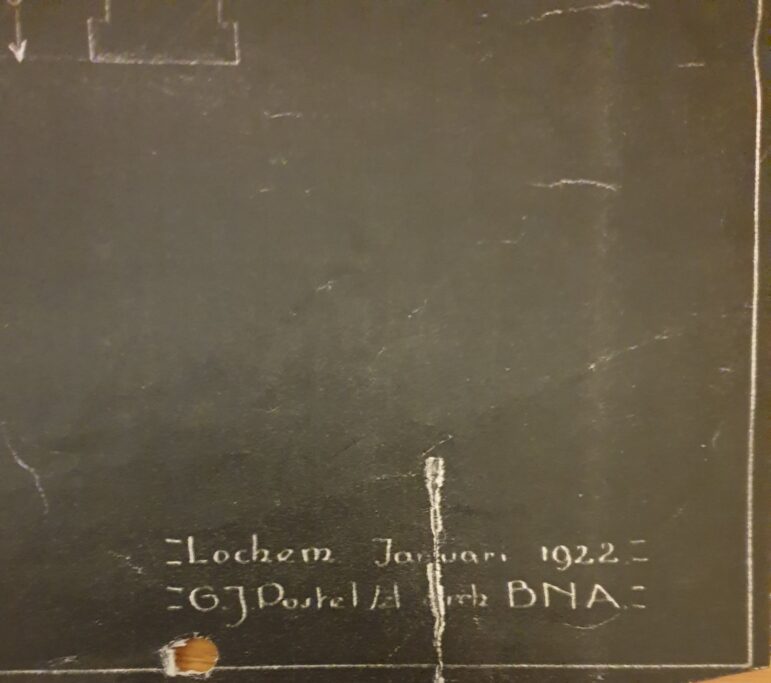 =Lochem Januari 1922=
=G.J Postel Arch BNA.=